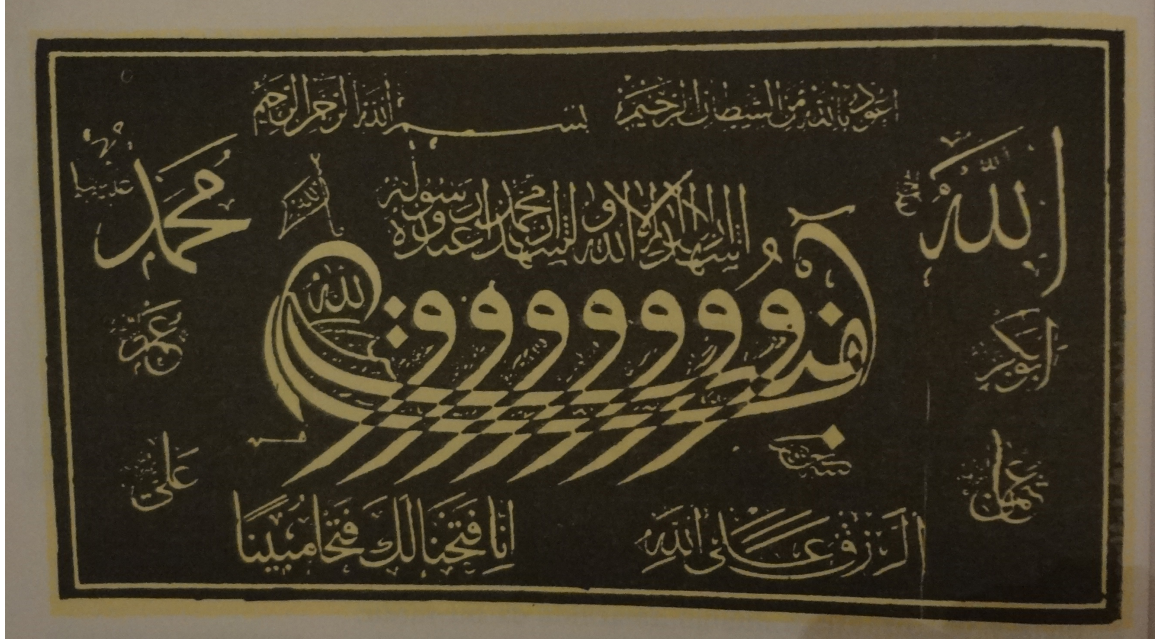 اعوذ بالله من الشيطان الرجيم
بسم الله الرحمن الرحيم
الله
محمد
اشهد ان لا اله الا الله و اشهد ان محمدا عبده و رسوله
الله
ابوبكر
عمر
عثمان
على
الرزق على الله
انا فتحنا لك فتحا مبينا